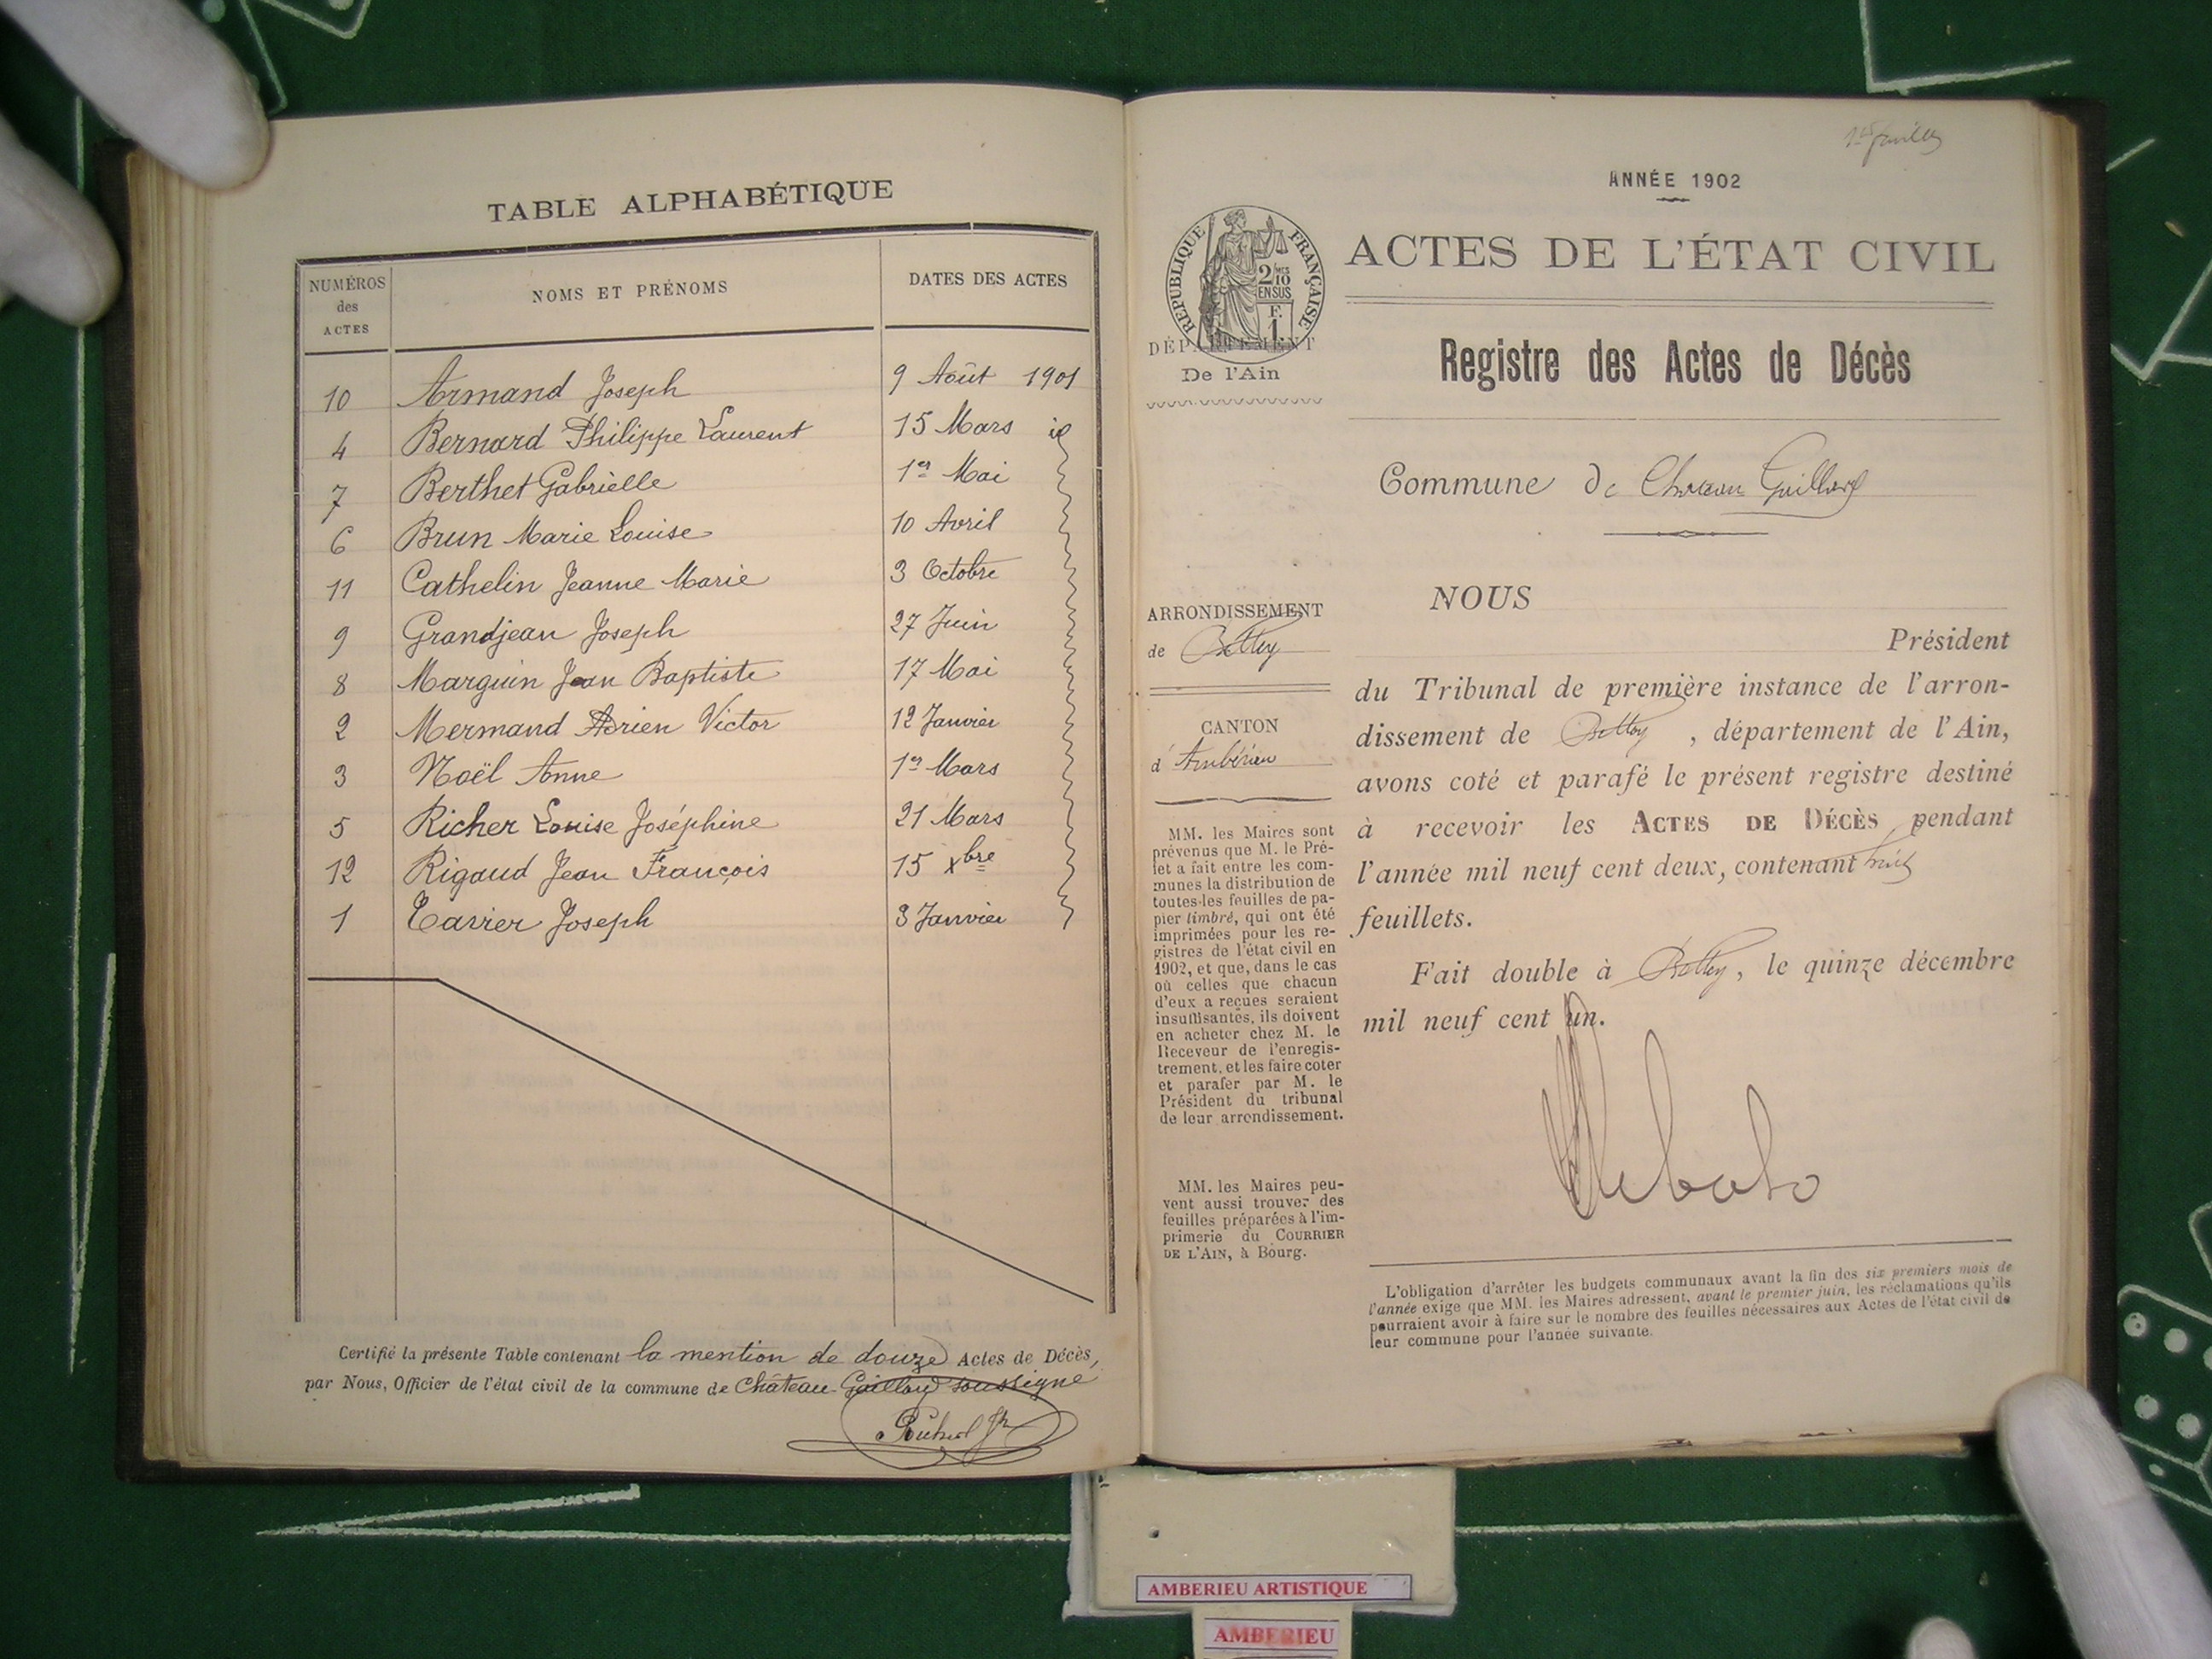 TABLE ALPHABÉTIQUE
NUMÉROS des ACTES NOMS ET PRÉNOMS DATES DES ACTES
10 Armand Joseph 9 Août 1901
4 Bernard Philippe Laurent 15 Mars id
7 Berthet Gabrielle 1er Mai
6 Brun Marie Louise 10 Avril
11 Cathelin Jeanne Marie 3 Octobre
9 Grandjean Joseph 27 Juin
8 Marguin Jean Baptiste 17 Mai
2 Mermand Adrien Victor 12 Janvier
3 Noël Anne 1er Mars
5 Richer Louise Joséphine 21 Mars
12 Rigaud Jean François 15 Xbre
1 Tavier Joseph 3 Janvier
Certifié la présente Table contenant la mention de douze Actes de Décès,
par Nous, Officier de l'état civil de la commune de Château-Gaillard soussigné
ANNÉE 1902
RÉPUBLIQUE FRANÇAISE
2/10 mes
EN SUS
F.
1.
DÉPARTEMENT
De l'Ain
ACTES DE L'ÉTAT CIVIL
Registre des Actes de Décès
Commune de Chateau Gaillard
ARRONDISSEMENT
de Belley
CANTON
d'Ambérieu
MM. les Maires sont
prévenus que M. le Pré-
fet a fait entre les com-
munes la distribution de
toutes les feuilles de pa-
pier timbré, qui ont été
imprimées pour les re-
gistres de l'état civil en
1902, et que, dans le cas
où celles que chacun
d'eux a reçues seraient
insuffisantes, ils doivent
en acheter chez M. le
Receveur de l'enregis-
trement, et les faire coter
et parafer par M. le
Président du tribunal
de leur arrondissement.
MM. les Maires peu-
vent aussi trouver des
feuilles préparées à l'im-
primerie du COURRIER
DE L'AIN, à Bourg.
NOUS
Président
du Tribunal de première instance de l'arron-
dissement de Belley, département de l'Ain,
avons coté et parafé le présent registre destiné
à recevoir les ACTES DE DÉCÈS pendant
l'année mil neuf cent deux, contenant huit
feuillets.
Fait double à Belley, le quinze décembre
mil neuf cent un.
L'obligation d'arrêter les budgets communaux avant la fin des six premiers mois de
l'année exige que MM. les Maires adressent, avant le premier juin, les réclamations qu'ils
pourraient avoir à faire sur le nombre des feuilles nécessaires aux Actes de l'état civil de
leur commune pour l'année suivante.
AMBERIEU ARTISTIQUE
AMBERIEU